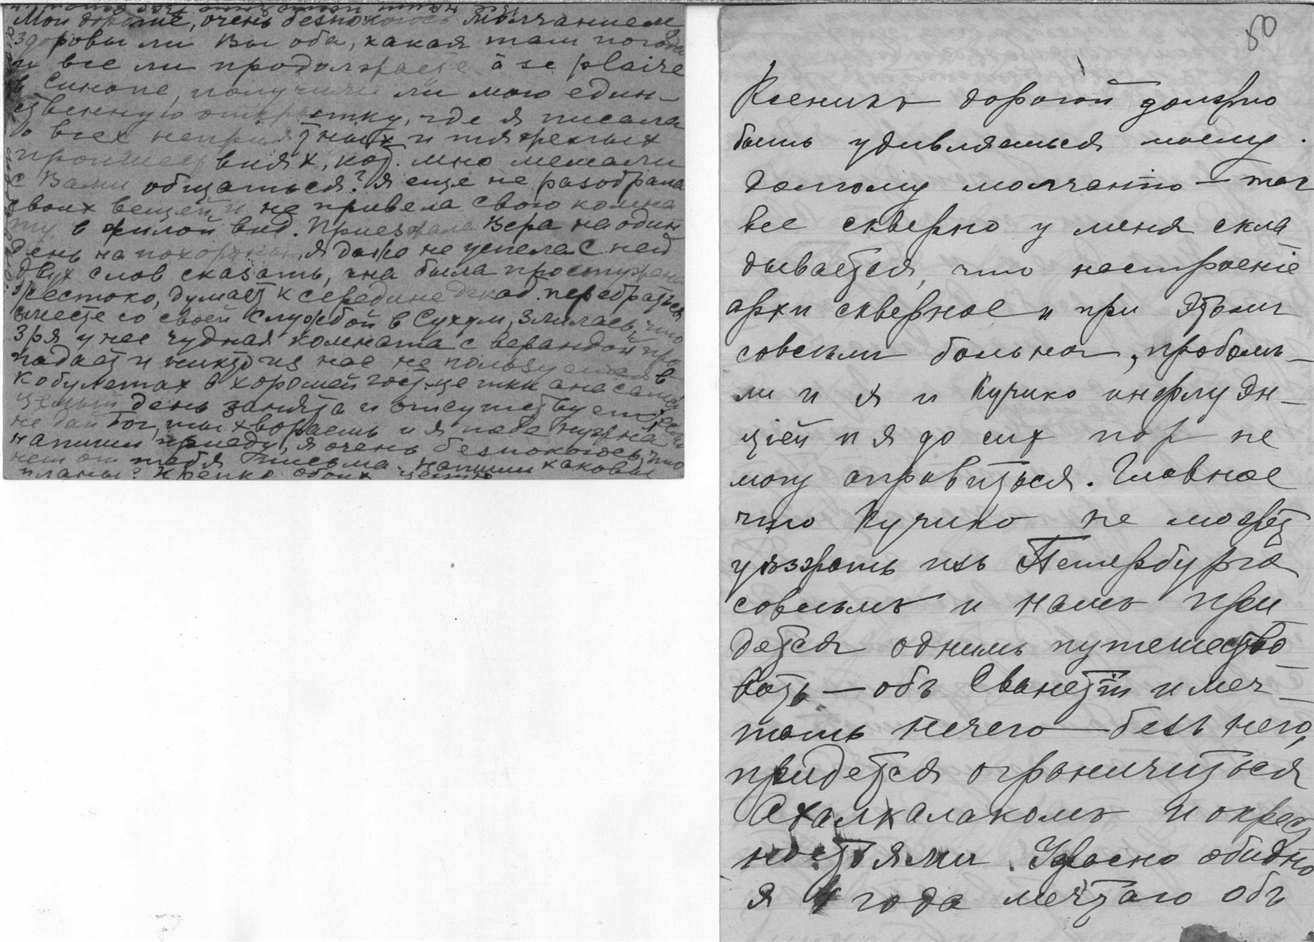 Мои дорогие, очень безпокоюсь молчанием
здоровы ли Вы оба, какая там погода
и все ли продолжаете à se plaire
в Синопе, получили ли мою един-
ственную открытку, где я писала
о всех неприятных и тяжелых
происшествиях, кот. мне мешали
с Вами общаться? Я еще не разобрала
своих вещей и не привела свою комна
ту в жилой вид. Приезжала Вера на один
день на похороны, я даже не успела с ней
двух слов сказать, она была простужена
жестоко, думает к середине декаб. перебраться
вместе со своей службой в Сухум, злилась, что
зря у нее чудная комната с верандой про
падает и никто из нас не пользуется в
Кобулетах в хорошей гостинице а сама
целый день занята и отсутствует, если
не дай Бог, ты хвораешь и я тебе нужна
напиши, приеду, я очень безпокоюсь, что
нет от тебя письма. Напиши каковы
планы? Крепко обоих целую
80
Ксеникъ дорогой должно
быть удивляешься моему
долгому молчанію — так
все скверно у меня скла
дывается, что настроеніе
архи скверное и при этом
совсем больная, проболѣ-
ли и я и Кучико инфлуэн-
ціей и я до сих пор не
могу оправиться. Главное
что Кучико не может
уѣзжать изъ Петербурга
совсемъ и намъ при
дется однимъ путешество
вать — объ Сванетіи и меч-
тать нечего — безъ него,
придется ограничиться
Ахалкалакомъ и окрест
ностями. Ужасно обидно
я 4 года мечтаю объ